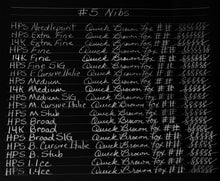 #5 Nibs
HPS Needlepoint Quick Brown Fox ##
HPS Extra Fine Quick Brown Fox ##
14K Extra Fine Quick Brown Fox ##
HPS Fine Quick Brown Fox ##
14K Fine Quick Brown Fox ##
HPS Fine SIG Quick Brown Fox ##
HPS F. Cursive Italic Quick Brown Fox ##
HPS Medium Quick Brown Fox ##
14K Medium Quick Brown Fox ##
HPS Medium SIG Quick Brown Fox ##
HPS M. Cursive Italic Quick Brown Fox ##
HPS M. Stub Quick Brown Fox ##
HPS Broad Quick Brown Fox ##
14K Broad Quick Brown Fox ##
HPS Broad SIG Quick Brown Fox ##
HPS B. Cursive Italic Quick Brown Fox ##
HPS B. Stub Quick Brown Fox ##
HPS 1.1cc Quick Brown Fox ##
HPS 1.4cc Quick Brown Fox ##